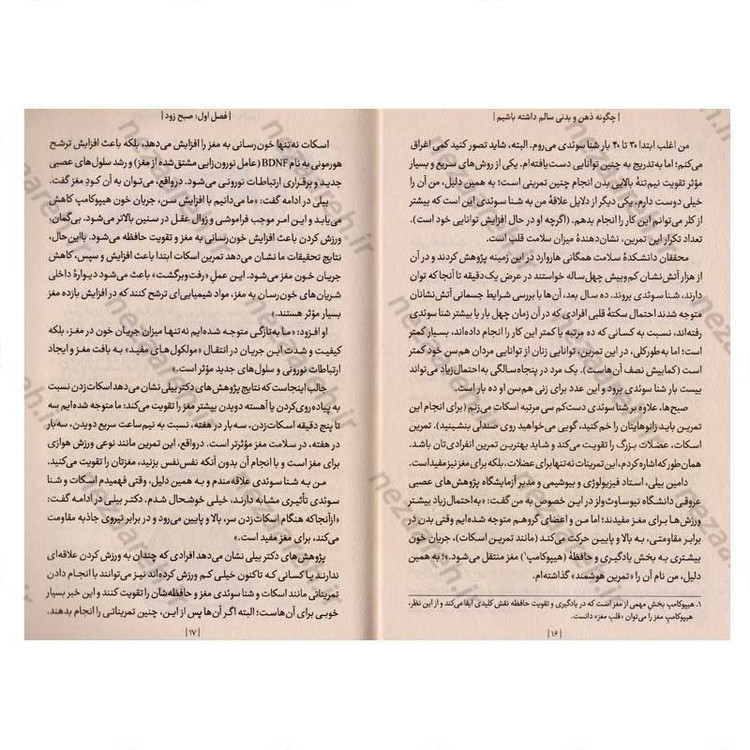 | چگونه ذهن و بدنی سالم داشته باشیم |
من اغلب ابتدا ۳۰ تا ۴۰ بار شنا سوئدی می‌روم. البته، شاید تصور کنید کمی اغراق
می‌کنم؛ اما به‌تدریج به چنین توانایی دست یافته‌ام. یکی از روش‌های سریع و بسیار
مؤثر تقویت نیم‌تنهٔ بالایی بدن انجام چنین تمرینی است. به همین دلیل، من آن را
خیلی دوست دارم. یکی دیگر از دلایل علاقهٔ من به شنا سوئدی این است که بیشتر
از کلر می‌توانم این کار را انجام بدهم. (اگرچه او در حال افزایش توانایی خود است).
تعداد تکرار این تمرین، نشان‌دهندهٔ میزان سلامت قلب است.
محققان دانشکدهٔ سلامت همگانی هاروارد در این زمینه پژوهش کردند و در آن
از هزار آتش‌نشان کم‌وبیش چهل‌ساله خواستند در عرض یک دقیقه تا آنجا که توان
دارند، شنا سوئدی بروند. ده سال بعد، آن‌ها با بررسی شرایط جسمانی آتش‌نشانان
متوجه شدند احتمال سکتهٔ قلبی افرادی که در آن زمان چهل بار یا بیشتر شنا سوئدی
رفته‌اند، نسبت به کسانی که ده مرتبه یا کمتر این کار را انجام داده‌اند، بسیار کمتر
است؛ اما به‌طورکلی، در این تمرین، توانایی زنان از توانایی مردان هم‌سن خود کمتر
است (کمابیش نصف آن‌ها است). یک مرد در پنجاه‌سالگی به‌احتمال‌زیاد می‌تواند
بیست بار شنا سوئدی برود و این عدد برای زنی هم‌سن او ده بار است.
صبح‌ها، علاوه بر شنا سوئدی دست‌کم سی مرتبه اسکات می‌زنم (برای انجام این
تمرین باید زانوهایتان را خم کنید، گویی می‌خواهید روی صندلی بنشینید). تمرین
اسکات، عضلات بزرگ را تقویت می‌کند و شاید بهترین تمرین انفرادی‌تان باشد.
همان‌طور که اشاره کردم، این تمرینات نه‌تنها برای عضلات، بلکه برای مغز نیز مفید است.
دامین بیلی، استاد فیزیولوژی و بیوشیمی و مدیر آزمایشگاه پژوهش‌های عصبی
عروقی دانشگاه نیوساوث‌ولز در این خصوص به من گفت: «به‌احتمال‌زیاد بیشتر
ورزش‌ها برای مغز مفیدند؛ اما من و اعضای گروهم متوجه شده‌ایم وقتی بدن در
برابر مقاومتی، به بالا و پایین حرکت می‌کند (مانند تمرین اسکات)، جریان خون
بیشتری به بخش یادگیری و حافظهٔ (هیپوکامپ۱) مغز منتقل می‌شود.»؛ به همین
دلیل، من نام آن را «تمرین هوشمند» گذاشته‌ام.
۱. هیپوکامپ بخش مهمی از مغز است که در یادگیری و تقویت حافظه نقش کلیدی ایفا می‌کند و از این نظر،
هیپوکامپ مغز را می‌توان «قلب مغز» دانست.
| ۱۶ |
| فصل اول: صبح زود |
اسکات نه‌تنها خون‌رسانی به مغز را افزایش می‌دهد، بلکه باعث افزایش ترشح
هورمونی به نام BDNF (عامل نورون‌زایی مشتق‌شده از مغز) و رشد سلول‌های عصبی
جدید و برقراری ارتباطات نورونی می‌شود. درواقع، می‌توان به آن کودِ مغز گفت.
بیلی در ادامه گفت: «ما می‌دانیم با افزایش سن، جریان خون هیپوکامپ کاهش
می‌یابد و این امر موجب فراموشی و زوال عقل در سنین بالاتر می‌شود. بی‌گمان،
ورزش کردن باعث افزایش خون‌رسانی به مغز و تقویت حافظه می‌شود. بااین‌حال،
نتایج تحقیقات ما نشان می‌دهد تمرین اسکات ابتدا باعث افزایش و سپس، کاهش
جریان خون مغز می‌شود. این عملِ «رفت‌وبرگشت» باعث می‌شود دیوارهٔ داخلی
شریان‌های خون‌رسان به مغز، مواد شیمیایی‌ای ترشح کنند که در افزایش بازده مغز
بسیار مؤثر هستند.»
او افزود: «ما به‌تازگی متوجه شده‌ایم نه‌تنها میزان جریان خون در مغز، بلکه
کیفیت و شدت این جریان در انتقال "مولکول‌های مفید" به بافت مغز و ایجاد
ارتباطات نورونی و سلول‌های جدید مؤثر است.»
جالب اینجاست که نتایج پژوهش‌های بیلی نشان می‌دهد اسکات‌زدن نسبت
به پیاده‌روی‌کردن یا آهسته دویدن بیشتر مغز را تقویت می‌کند: «ما متوجه شده‌ایم سه
تا پنج دقیقه اسکات‌زدن، سه‌بار در هفته، نسبت به نیم‌ساعت سریع دویدن، سه‌بار
در هفته، در سلامت مغز مؤثرتر است. درواقع، این تمرین مانند نوعی ورزش هوازی
برای مغز است و با انجام آن بدون آنکه نفس‌نفس بزنید، مغزتان را تقویت می‌کنید.
من به شنا سوئدی علاقه‌مندم و به همین دلیل، وقتی فهمیدم اسکات و شنا
سوئدی تأثیری مشابه دارند، خیلی خوشحال شدم. دکتر بیلی در ادامه گفت:
«ازآنجاکه هنگام اسکات‌زدن سر، بالا و پایین می‌رود و در برابر نیروی جاذبه مقاومت
می‌کند، برای مغز مفید است.»
پژوهش‌های دکتر بیلی نشان می‌دهد افرادی که چندان به ورزش کردن علاقه‌ای
ندارند یا کسانی که تاکنون خیلی کم ورزش کرده‌اند نیز می‌توانند با انجام دادن
تمریناتی مانند اسکات و شنا سوئدی مغز و حافظه‌شان را تقویت کنند و این خبر بسیار
خوبی برای آن‌هاست؛ البته اگر آن‌ها پس از این، چنین تمریناتی را انجام بدهند.
| ۱۷ |
nezaareh.ir